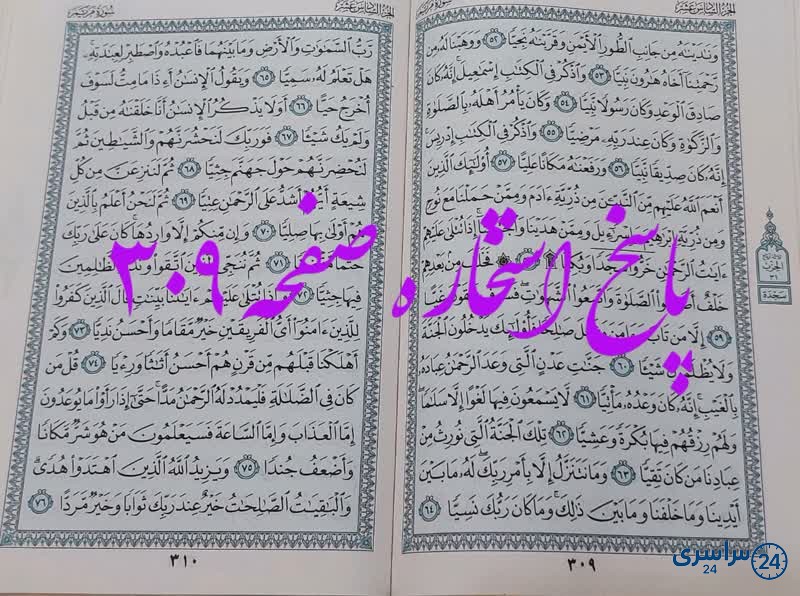 الجزء السادس عشر
سورة مريم
وَنَٰدَيۡنَٰهُ مِن جَانِبِ ٱلطُّورِ ٱلۡأَيۡمَنِ وَقَرَّبۡنَٰهُ نَجِيّٗا ٥٢ وَوَهَبۡنَا لَهُۥ مِن
رَّحۡمَتِنَآ أَخَاهُ هَٰرُونَ نَبِيّٗا ٥٣ وَٱذۡكُرۡ فِي ٱلۡكِتَٰبِ إِسۡمَٰعِيلَۚ إِنَّهُۥ كَانَ
صَادِقَ ٱلۡوَعۡدِ وَكَانَ رَسُولٗا نَّبِيّٗا ٥٤ وَكَانَ يَأۡمُرُ أَهۡلَهُۥ بِٱلصَّلَوٰةِ
وَٱلزَّكَوٰةِ وَكَانَ عِندَ رَبِّهِۦ مَرۡضِيّٗا ٥٥ وَٱذۡكُرۡ فِي ٱلۡكِتَٰبِ إِدۡرِيسَۚ
إِنَّهُۥ كَانَ صِدِّيقٗا نَّبِيّٗا ٥٦ وَرَفَعۡنَٰهُ مَكَانًا عَلِيًّا ٥٧ أُوْلَٰٓئِكَ ٱلَّذِينَ
أَنۡعَمَ ٱللَّهُ عَلَيۡهِم مِّنَ ٱلنَّبِيِّـۧنَ مِن ذُرِّيَّةِ ءَادَمَ وَمِمَّنۡ حَمَلۡنَا مَعَ نُوحٖ
وَمِن ذُرِّيَّةِ إِبۡرَٰهِيمَ وَإِسۡرَٰٓءِيلَ وَمِمَّنۡ هَدَيۡنَا وَٱجۡتَبَيۡنَآۚ إِذَا تُتۡلَىٰ عَلَيۡهِمۡ
ءَايَٰتُ ٱلرَّحۡمَٰنِ خَرُّواْۤ سُجَّدٗاۤ وَبُكِيّٗا۩ ٥٨ ۞ فَخَلَفَ مِنۢ بَعۡدِهِمۡ
خَلۡفٌ أَضَاعُواْ ٱلصَّلَوٰةَ وَٱتَّبَعُواْ ٱلشَّهَوَٰتِۖ فَسَوۡفَ يَلۡقَوۡنَ غَيًّا
٥٩ إِلَّا مَن تَابَ وَءَامَنَ وَعَمِلَ صَٰلِحٗا فَأُوْلَٰٓئِكَ يَدۡخُلُونَ ٱلۡجَنَّةَ
وَلَا يُظۡلَمُونَ شَيۡـٔٗا ٦٠ جَنَّٰتِ عَدۡنٍ ٱلَّتِي وَعَدَ ٱلرَّحۡمَٰنُ عِبَادَهُۥ
بِٱلۡغَيۡبِۚ إِنَّهُۥ كَانَ وَعۡدُهُۥ مَأۡتِيّٗا ٦١ لَّا يَسۡمَعُونَ فِيهَا لَغۡوًا إِلَّا سَلَٰمٗاۖ
وَلَهُمۡ رِزۡقُهُمۡ فِيهَا بُكۡرَةٗ وَعَشِيّٗا ٦٢ تِلۡكَ ٱلۡجَنَّةُ ٱلَّتِي نُورِثُ مِنۡ
عِبَادِنَا مَن كَانَ تَقِيّٗا ٦٣ وَمَا نَتَنَزَّلُ إِلَّا بِأَمۡرِ رَبِّكَۖ لَهُۥ مَا بَيۡنَ
أَيۡدِينَا وَمَا خَلۡفَنَا وَمَا بَيۡنَ ذَٰلِكَۚ وَمَا كَانَ رَبُّكَ نَسِيّٗا ٦٤
الحزب
٣١
سجدة
٣٠٩
الجزء السادس عشر
سورة مريم
رَّبُّ ٱلسَّمَٰوَٰتِ وَٱلۡأَرۡضِ وَمَا بَيۡنَهُمَا فَٱعۡبُدۡهُ وَٱصۡطَبِرۡ لِعِبَٰدَتِهِۦۚ
هَلۡ تَعۡلَمُ لَهُۥ سَمِيّٗا ٦٥ وَيَقُولُ ٱلۡإِنسَٰنُ أَءِذَا مَا مِتُّ لَسَوۡفَ
أُخۡرَجُ حَيًّا ٦٦ أَوَلَا يَذۡكُرُ ٱلۡإِنسَٰنُ أَنَّا خَلَقۡنَٰهُ مِن قَبۡلُ
وَلَمۡ يَكُ شَيۡـٔٗا ٦٧ فَوَرَبِّكَ لَنَحۡشُرَنَّهُمۡ وَٱلشَّيَٰطِينَ ثُمَّ
لَنُحۡضِرَنَّهُمۡ حَوۡلَ جَهَنَّمَ جِثِيّٗا ٦٨ ثُمَّ لَنَنزِعَنَّ مِن كُلِّ
شِيعَةٍ أَيُّهُمۡ أَشَدُّ عَلَى ٱلرَّحۡمَٰنِ عِتِيّٗا ٦٩ ثُمَّ لَنَحۡنُ أَعۡلَمُ بِٱلَّذِينَ
هُمۡ أَوۡلَىٰ بِهَا صِلِيّٗا ٧٠ وَإِن مِّنكُمۡ إِلَّا وَارِدُهَاۚ كَانَ عَلَىٰ رَبِّكَ
حَتۡمٗا مَّقۡضِيّٗا ٧١ ثُمَّ نُنَجِّي ٱلَّذِينَ ٱتَّقَواْ وَّنَذَرُ ٱلظَّٰلِمِينَ
فِيهَا جِثِيّٗا ٧٢ وَإِذَا تُتۡلَىٰ عَلَيۡهِمۡ ءَايَٰتُنَا بَيِّنَٰتٖ قَالَ ٱلَّذِينَ كَفَرُواْ
لِلَّذِينَ ءَامَنُوٓاْ أَيُّ ٱلۡفَرِيقَيۡنِ خَيۡرٞ مَّقَامٗا وَأَحۡسَنُ نَدِيّٗا ٧٣ وَكَمۡ
أَهۡلَكۡنَا قَبۡلَهُم مِّن قَرۡنٍ هُمۡ أَحۡسَنُ أَثَٰثٗا وَرِءۡيٗا ٧٤ قُلۡ مَن
كَانَ فِي ٱلضَّلَٰلَةِ فَلۡيَمۡدُدۡ لَهُ ٱلرَّحۡمَٰنُ مَدًّاۚ حَتَّىٰٓ إِذَا رَأَوۡاْ مَا يُوعَدُونَ
إِمَّا ٱلۡعَذَابَ وَإِمَّا ٱلسَّاعَةَ فَسَيَعۡلَمُونَ مَنۡ هُوَ شَرّٞ مَّكَانٗا
وَأَضۡعَفُ جُندٗا ٧٥ وَيَزِيدُ ٱللَّهُ ٱلَّذِينَ ٱهۡتَدَوۡاْ هُدٗىۗ
وَٱلۡبَٰقِيَٰتُ ٱلصَّٰلِحَٰتُ خَيۡرٌ عِندَ رَبِّكَ ثَوَابٗا وَخَيۡرٞ مَّرَدًّا ٧٦
٣١٠
پاسخ استخاره صفحه ۳۰۹
سراسری 24
24